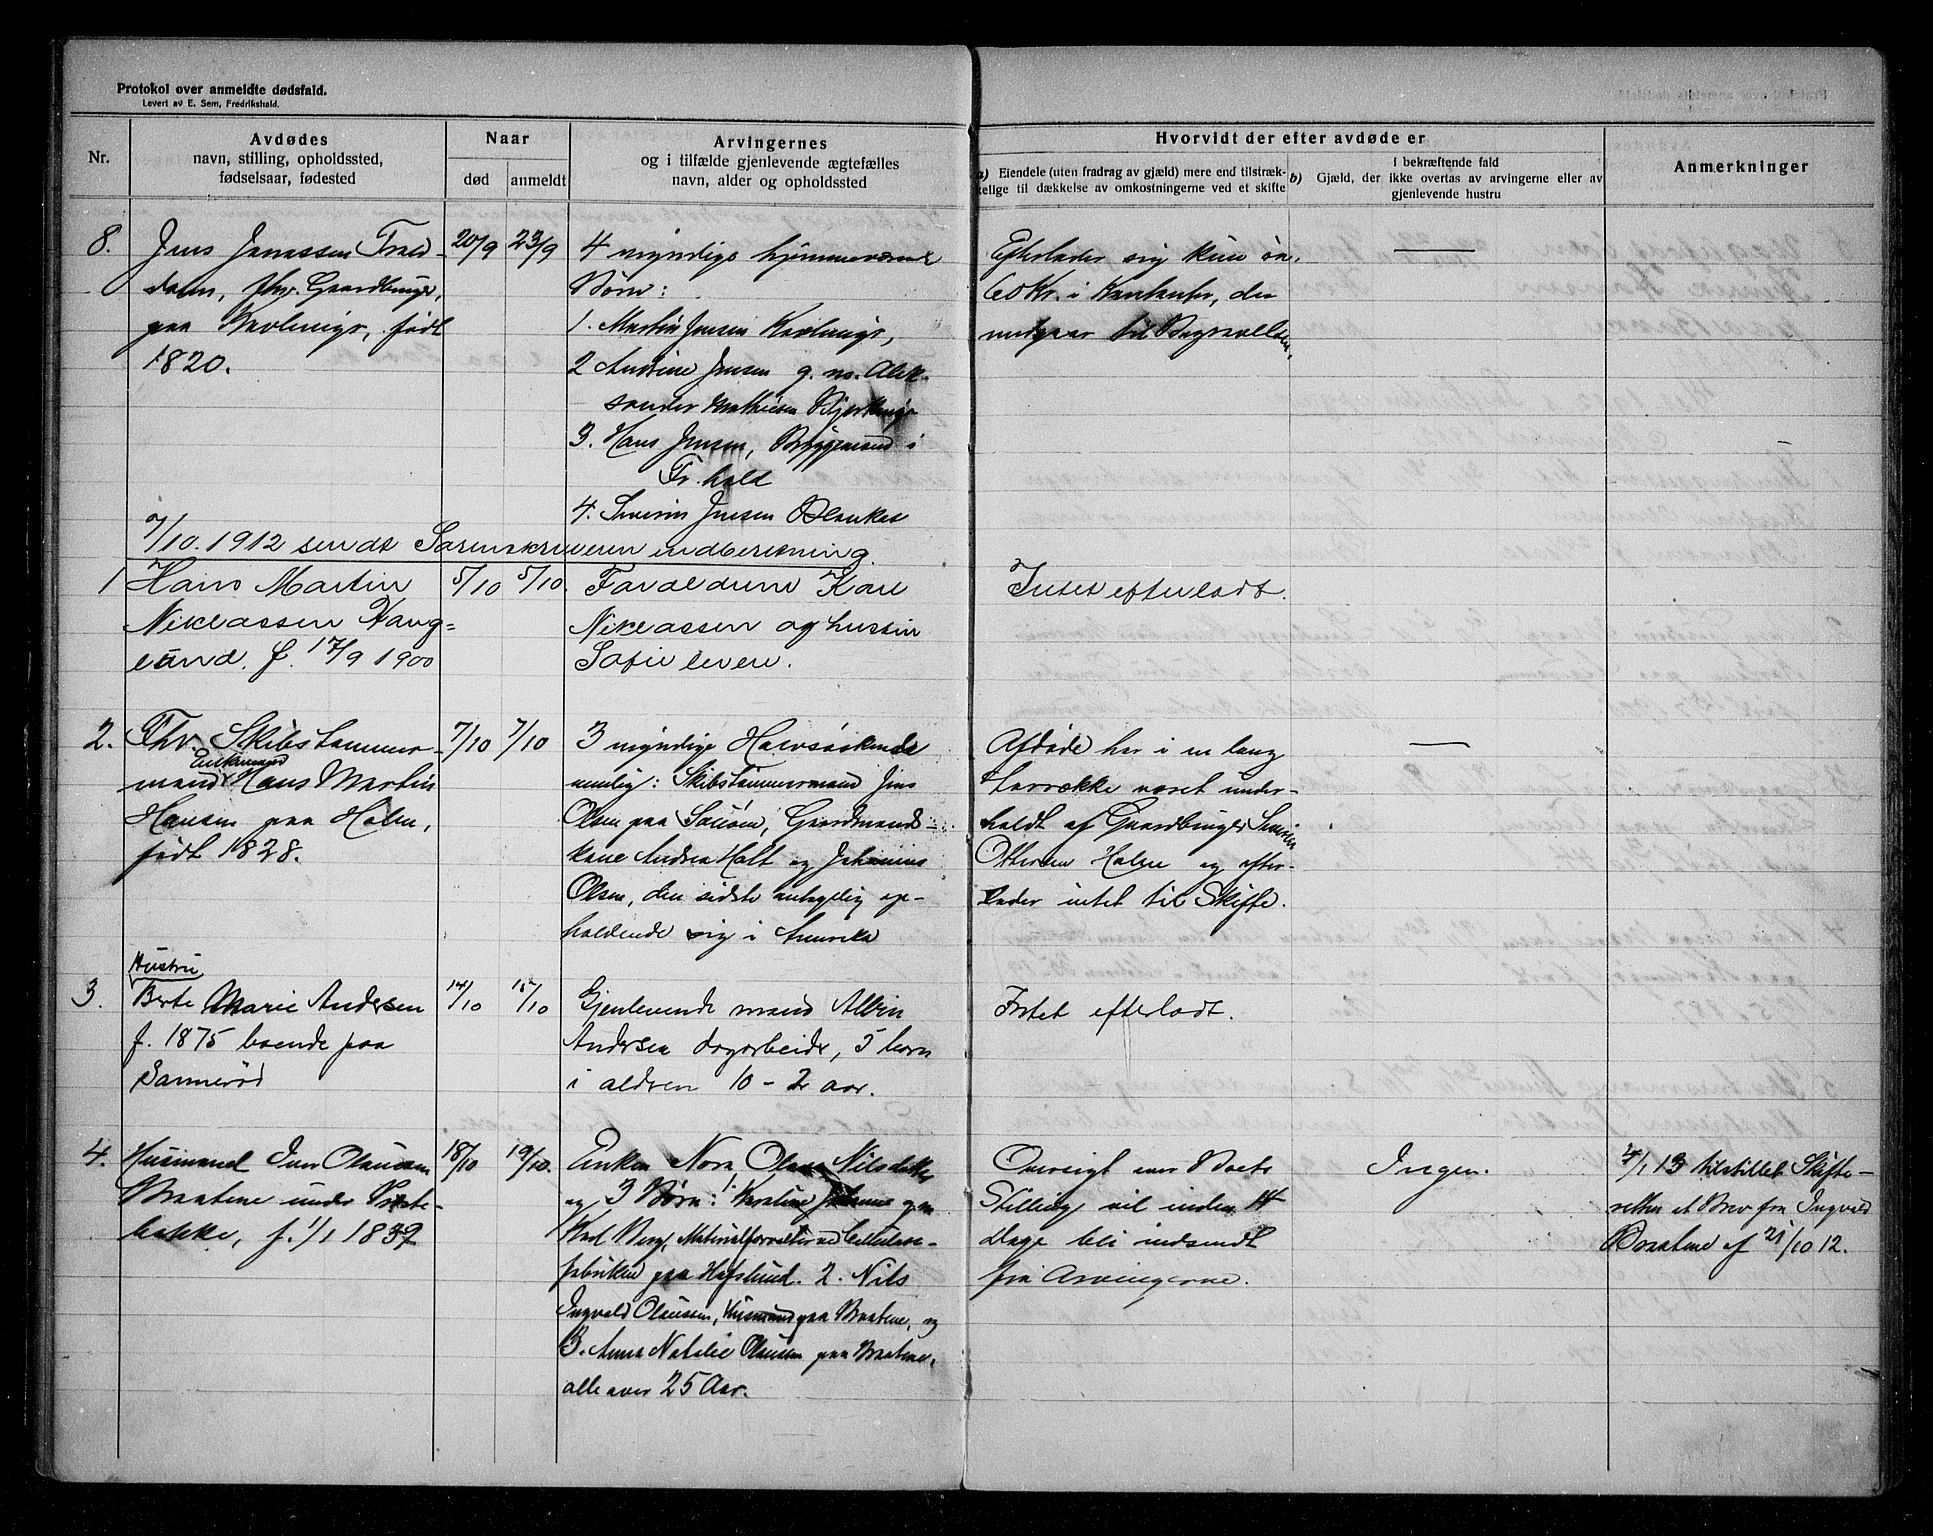 Protokol over anmeldte dødsfald.
Levert av E. Sem, Fredrikshald.
Nr.
Avdødes
navn, stilling, opholdssted,
fødselsaar, fødested
Naar
død
anmeldt
Arvingernes
og i tilfælde gjenlevende ægtefælles
navn, alder og opholdssted
Hvorvidt der efter avdøde er
a) Eiendele (uten fradrag av gjæld) mere end tilstræk-
kelige til dækkelse av omkostningerne ved et skifte
b) Gjæld, der
i bekræftende fald
ikke overtas av arvingerne eller av
gjenlevende hustru
Anmerkninger
8.
Jens
fhv. Gaardbruger,
paa født
1820.
20/9
23/9
4 myndige hjemmeværende
Børn:
1. Martin Jensen
2 Andrine Jensen g. m. Alek-
sander Mathisen
3. Hans Jensen, Bryggemand i
Fr.hald
4. Severin Jensen
Efterlader sig kun
60 Kr. i Kontanter, der
medgaar til Begravelsen.
7/10. 1912 sendt Sorenskriveren indberetning.
1
Hans Martin
Niklassen Haug=
lund. f. 17/9 1900
5/10
5/10.
Foraldrene Karl
Niklassen og hustru
Sofie lever.
Intet efterladt.
2.
Fhv. Skibstømmer-
Enkemand
mand Hans Martin
Hansen paa Holm,
født 1828.
7/10
7/10
3 myndige Halvsøskende
nemlig: Skibstømmermand Jens
Olsen paa Gaardmands-
kone Andrea Holt og Johannes
Olsen, den sidste antagelig op-
holdende sig i Amerika
Afdøde har i en lang
Aarrække været under-
holdt af Gaardbruger Severin
Ottersen Holm og efter-
lader intet til Skifte.
3.
Hustru
Berte Marie Andersen
f. 1875 boende paa
Sannerød
14/10
15/10
Gjenlevende mand Albin
Andersen dagarbeider, 5 barn
i aldren 10 - 2 aar.
Intet efterladt.
4.
Husmand Iver Olaussen
Braatene under
bakke, f. 1/1 1839
18/10
19/10.
Enken Nora Olava Nilsdatter
og 3 Børn: 1. Karoline Johanne g.m.
Karl Berg, Materialforvalter ved Cellulose-
fabriken paa Hafslund. 2. Nils
Ingvald Olaussen, Husmand paa Braatene, og
3. Anna Natalie Olaussen paa Braatene,
alle over 25 Aar.
Oversigt over Boets
Stilling vil inden 14
Dage bli indsendt
fra Arvingerne.
Ingen.
4/1 13 tilstillet Skifte-
retten et Brev fra Ingvald
Braatene af 21/10 12.